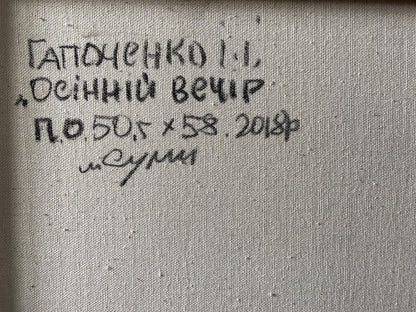 ГАПОЧЕНКО І.І.
„ОСІННІЙ ВЕЧІР
П.О. 50,5 × 58. 2018р
м Суми